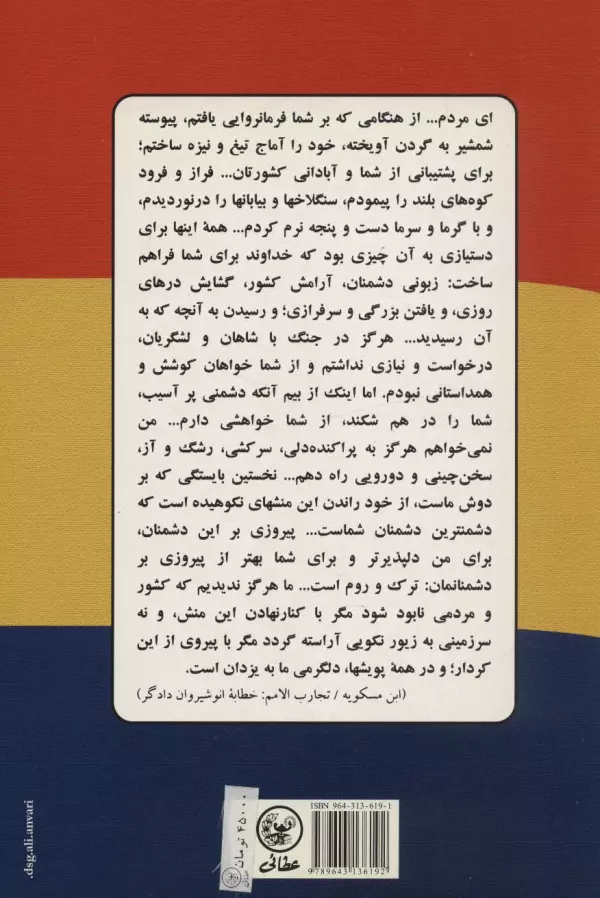 ای مردم... از هنگامی که بر شما فرمانروایی یافتم، پیوسته
شمشیر به گردن آویخته، خود را آماج تیغ و نیزه ساختم؛
برای پشتیبانی از شما و آبادانی کشورتان... فراز و فرود
کوه‌های بلند را پیمودم، سنگلاخها و بیابانها را درنوردیدم،
و با گرما و سرما دست و پنجه نرم کردم... همهٔ اینها برای
دستیازی به آن چیزی بود که خداوند برای شما فراهم
ساخت: زبونی دشمنان، آرامش کشور، گشایش درهای
روزی، و یافتن بزرگی و سرفرازی؛ و رسیدن به آنچه که به
آن رسیدید... هرگز در جنگ با شاهان و لشگریان،
درخواست و نیازی نداشتم و از شما خواهان کوشش و
همداستانی نبودم. اما اینک از بیم آنکه دشمنی پر آسیب،
شما را در هم شکند، از شما خواهشی دارم... من
نمی‌خواهم هرگز به پراکنده‌دلی، سرکشی، رشگ و آز،
سخن‌چینی و دورویی راه دهم... نخستین بایستگی که بر
دوش ماست، از خود راندن این منشهای نکوهیده است که
دشمنترین دشمنان شماست... پیروزی بر این دشمنان،
برای من دلپذیرتر و برای شما بهتر از پیروزی بر
دشمنانمان: ترک و روم است... ما هرگز ندیدیم که کشور
و مردمی نابود شود مگر با کنارنهادن این منش، و نه
سرزمینی به زیور نکویی آراسته گردد مگر با پیروی از این
کردار؛ و در همهٔ پویشها، دلگرمی ما به یزدان است.
(ابن مسکویه / تجارب الامم: خطابهٔ انوشیروان دادگر)
ISBN 964-313-619-1
9 789643 136192
عطائی
۴۵۰۰۰ تومان
.dsg.ali.anvari